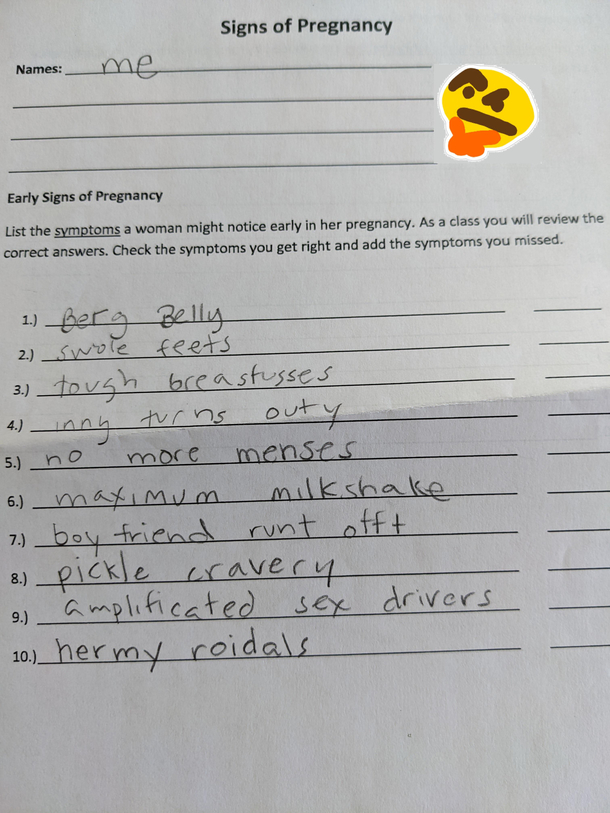 Signs of Pregnancy
Names: me
Early Signs of Pregnancy
List the symptoms a woman might notice early in her pregnancy. As a class you will review the
correct answers. Check the symptoms you get right and add the symptoms you missed.
1.) Berg Belly
2.) swole feets
3.) tough breastusses
4.) inny turns outy
5.) no more menses
6.) maximum milkshake
7.) boyfriend runt offt
8.) pickle cravery
9.) amplificated sex drivers
10.) hermy roidals